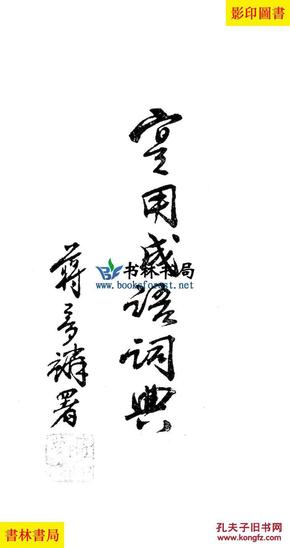 影印圖書
實用成語詞典
蔣夢麟署
书林书局
www.booksforest.net
書林書局
孔夫子旧书网
kongfz.com